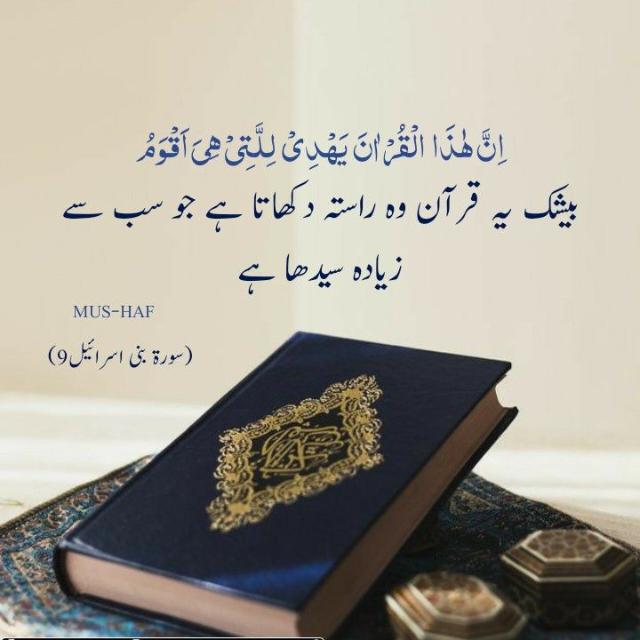 اِنَّ هٰذَا الْقُرْاٰنَ يَهْدِىْ لِلَّتِىْ هِىَ اَقْوَمُ
بیشک یہ قرآن وہ راستہ دکھاتا ہے جو سب سے
زیادہ سیدھا ہے
MUS-HAF
(سورۃ بنی اسرائیل 9)